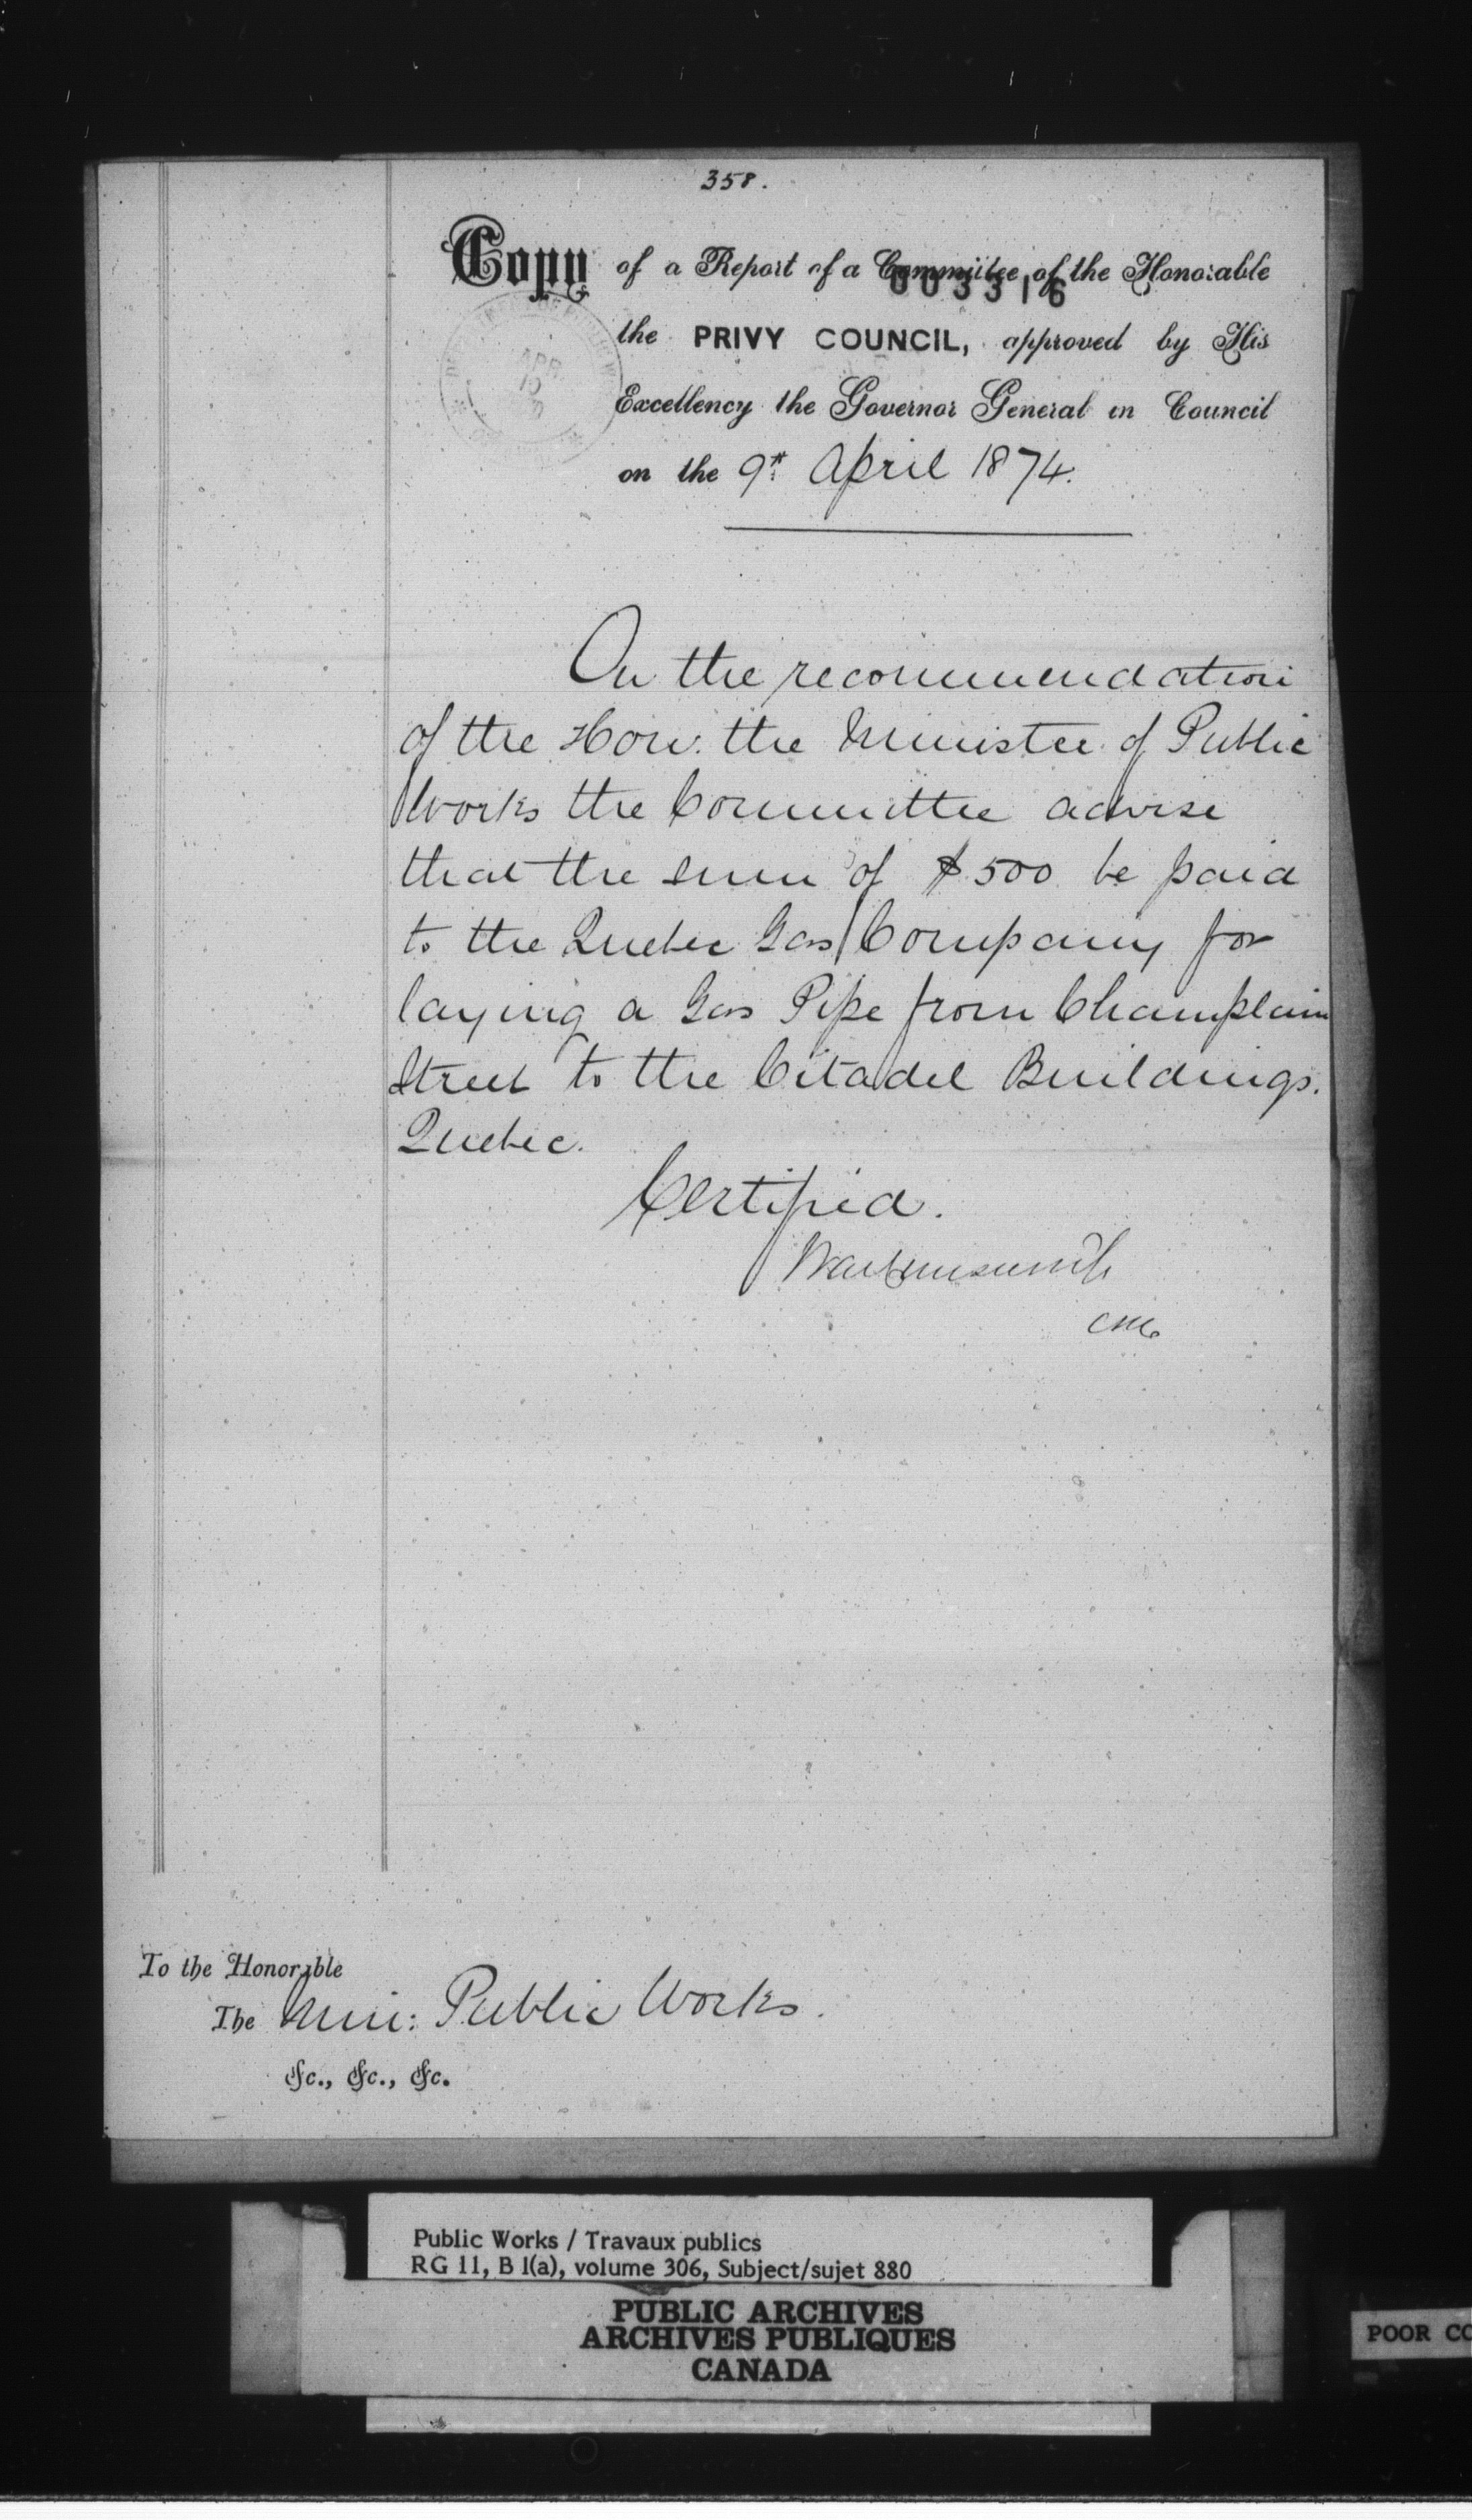 358.
Copy of a Report of a Committee of the Honorable
003316
the PRIVY COUNCIL, approved by His
Excellency the Governor General in Council
on the 9th April 1874.
APR
10
On the recommendation
of the Hon. the Minister of Public
Works the Committee advise
that the sum of $500 be paid
to the Quebec Gas Company for
laying a Gas Pipe from Champlain
Street to the Citadel Buildings.
Quebec.
Certified.
To the Honorable
The Min: Public Works.
&c., &c., &c.
Public Works / Travaux publics
RG 11, B 1(a), volume 306, Subject/sujet 880
PUBLIC ARCHIVES
ARCHIVES PUBLIQUES
CANADA
POOR CO